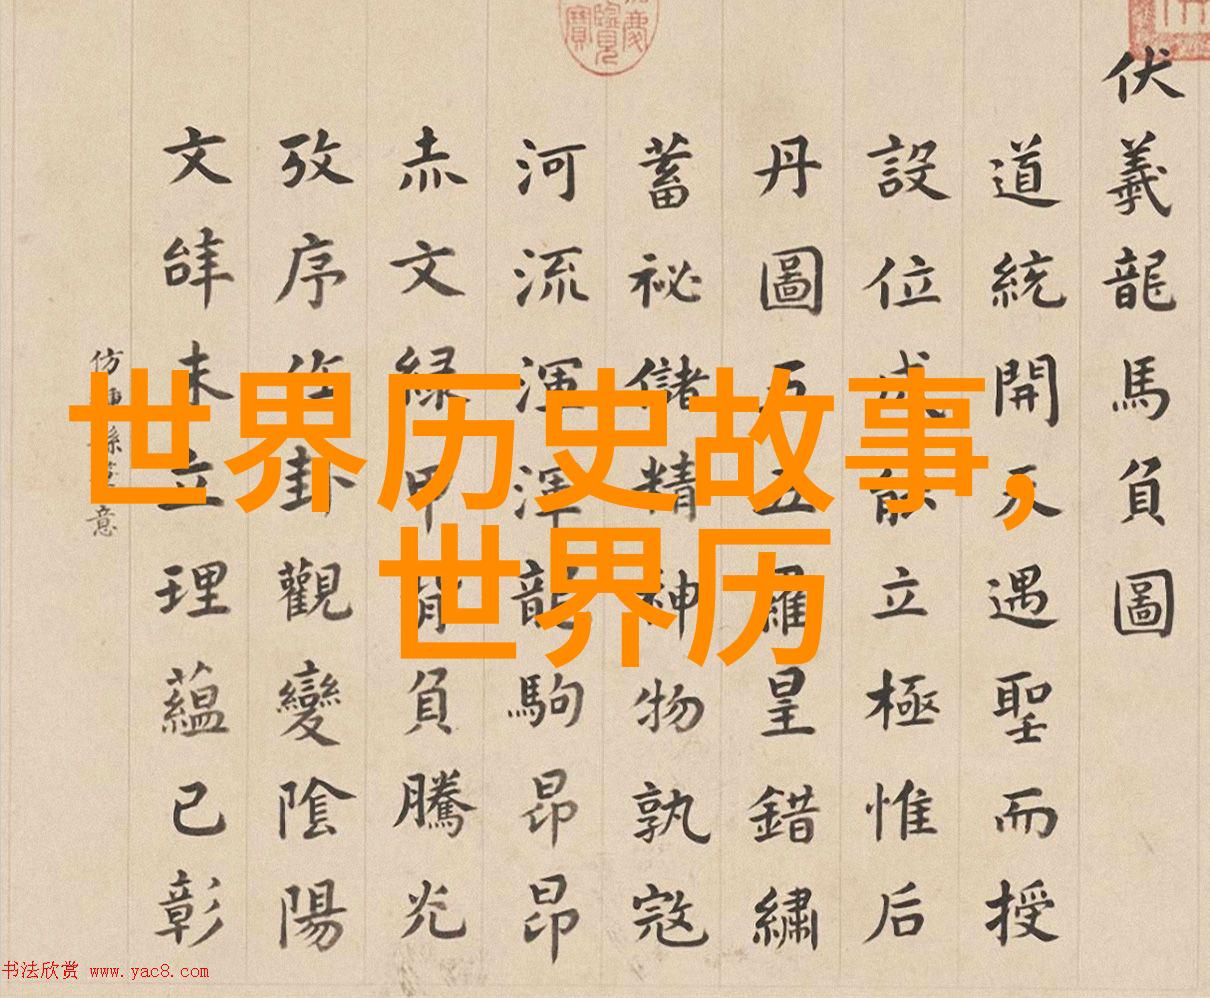 世界历史故事,
世界历
伏羲龍馬負圖
道統開天遇聖而授
設位成能立極惟后
丹圖五羅皇錯繡
蓄祕儲精神物孰寇
河流渾渾龍駒昂昂
赤文緑甲背負騰炗
攷序作卦觀變陰陽
文未立理蘊已彰
仿意
书法欣赏 www.yac8.com